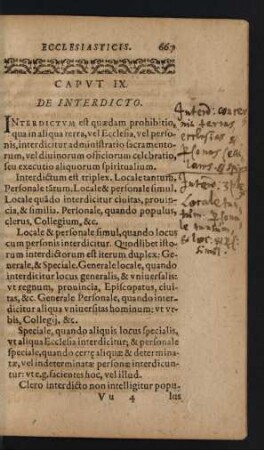 ECCLESIASTICIS. 667
CAPVT IX.
DE INTERDICTO.
INTERDICTVM est quædam prohibitio,
qua in aliqua terra, vel Ecclesia, vel perso-
nis, interdicitur administratio sacramento-
rum, vel diuinorum officiorum celebratio,
seu executio aliquorum spiritualium.
Interdictum est triplex. Locale tantùm.
Personale tãtùm. Locale & personale simul.
Locale quãdo interdicitur ciuitas, prouin-
cia, & similia. Personale, quando populus,
clerus, Collegium, &c.
Locale & personale simul, quando locus
cum personis interdicitur. Quodlibet isto-
rum interdictorum est iterum duplex: Ge-
nerale, & Speciale. Generale locale, quando
interdicitur locus generalis, & vniuersalis:
vt regnum, prouincia, Episcopatus, ciui-
tas, &c. Generale Personale, quando inter-
dicitur aliqua vniuersitas hominum; vt vr-
bis, Collegij, &c.
Speciale, quando aliquis locus specialis,
vt aliqua Ecclesia interdicitur; & personale
speciale, quando certę aliquæ & determina-
tæ, vel indeterminatæ personæ interdicun-
tur: vt e.g. facientes hoc, vel illud.
Clero interdicto non intelligitur popu-
Vu 4 lus
Interd:
terras
ecclesias &
Interd:
Locale tan
tùm
simul